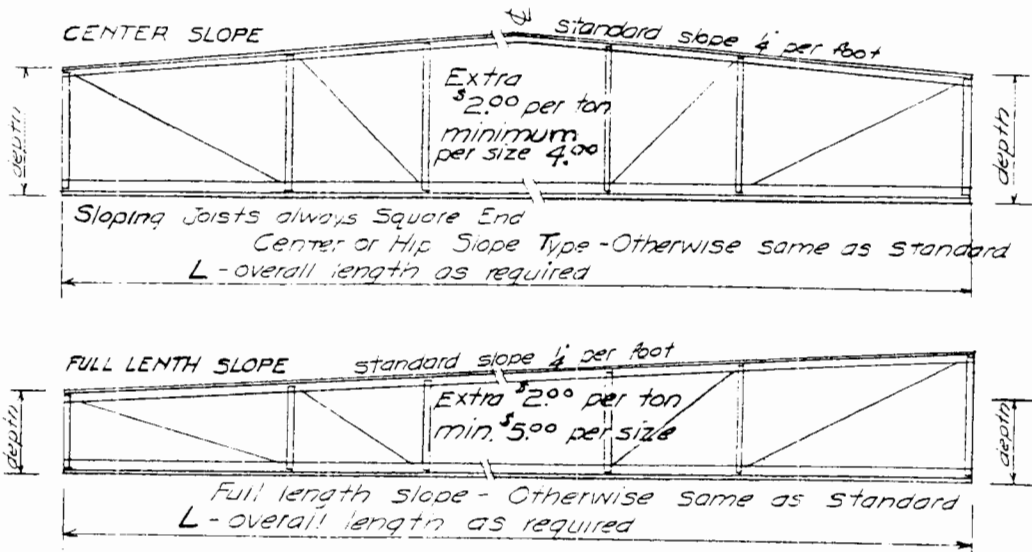 CENTER SLOPE
℄ standard slope ¼" per foot
Extra
$2.00 per ton
minimum
per size 4.00
depth
depth
Sloping Joists always Square End
Center or Hip Slope Type - Otherwise same as Standard
L - overall length as required
FULL LENTH SLOPE
standard slope ¼" per foot
Extra $2.00 per ton
min. $5.00 per size
depth
depth
Full length slope - Otherwise same as standard
L - overall length as required